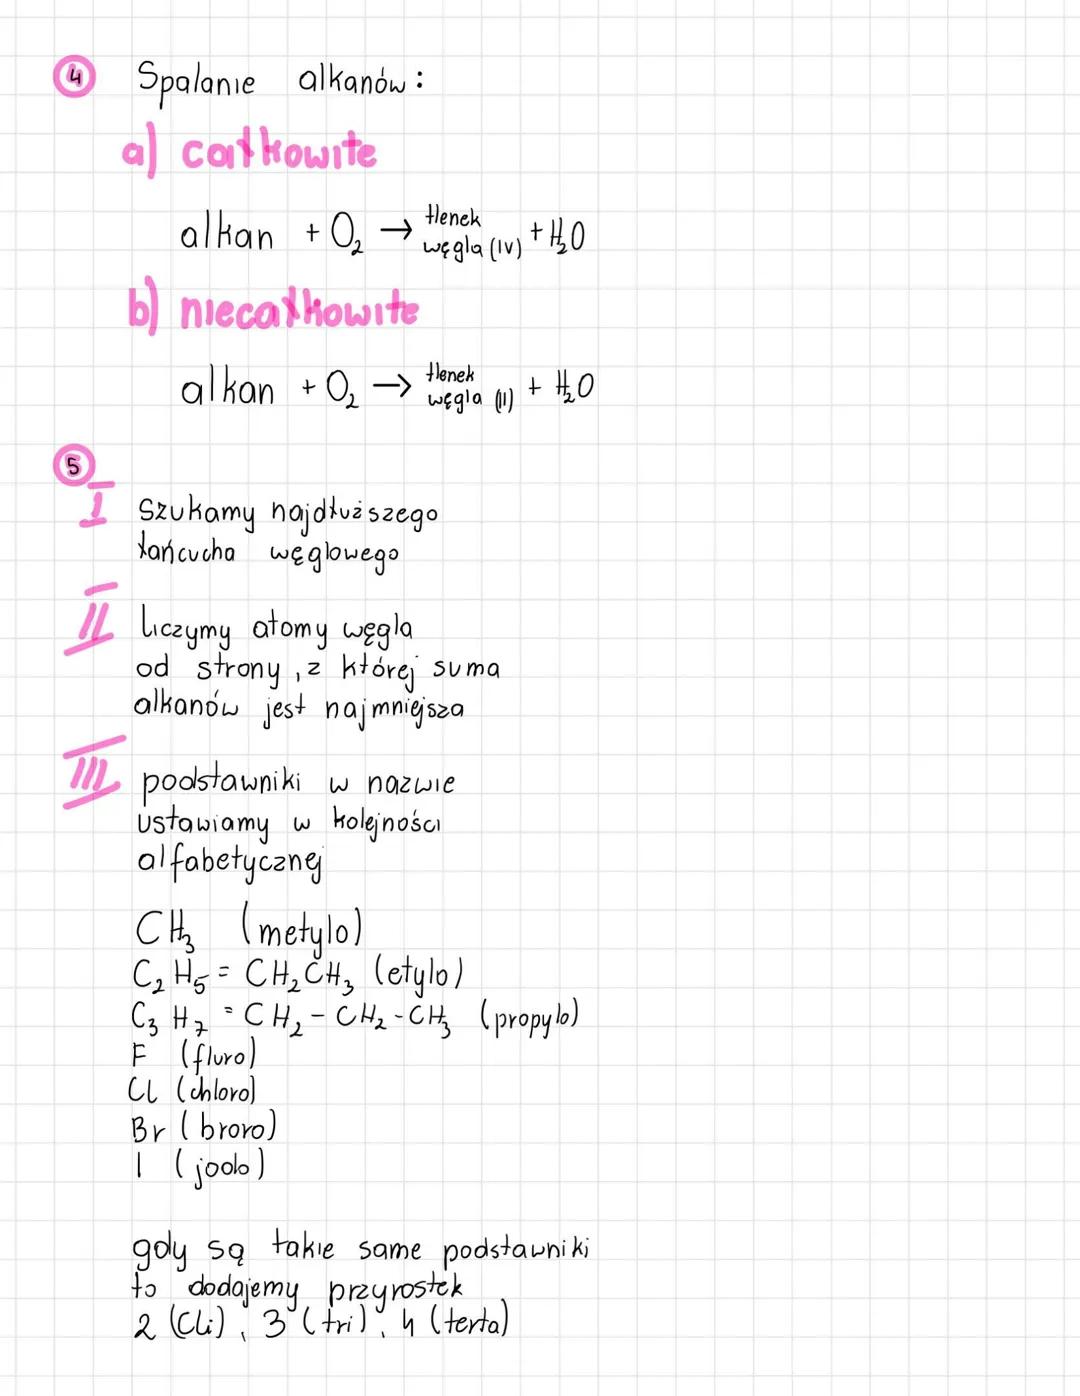 4 Spalanie alkanów:
a) całkowite
alkan + O₂ → tlenek węgla (IV) + H₂O
b) niecałkowite
alkan + O₂ → tlenek węgla (II) + H₂O
5
I Szukamy najdłuższego
łańcucha węglowego
II liczymy atomy węgla
od strony, z której suma
alkanów jest najmniejsza
III podstawniki w nazwie
ustawiamy w kolejności
alfabetycznej
CH₃ (metylo)
C₂H₅ = CH₂CH₃ (etylo)
C₃H₇ = CH₂-CH₂-CH₃ (propylo)
F (fluro)
Cl (chloro)
Br (broro)
I (jodo)
gdy są takie same podstawniki
to dodajemy przyrostek
2 (di), 3 (tri), 4 (terta)